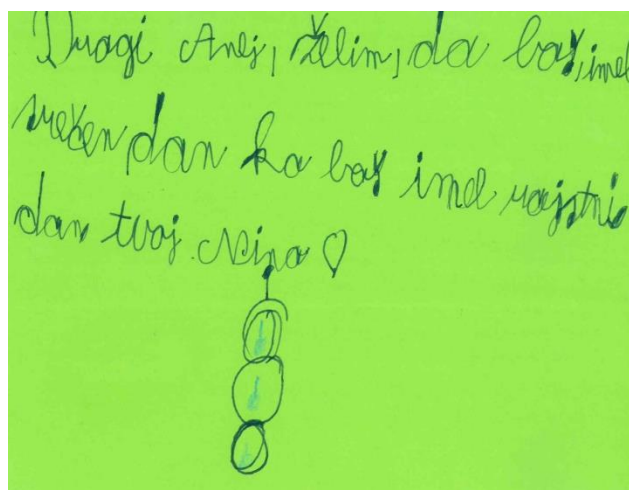 Dragi Anej, želim, da boš, imel
srečen dan ko boš imel rojstni
dan tvoj. Nina ♡